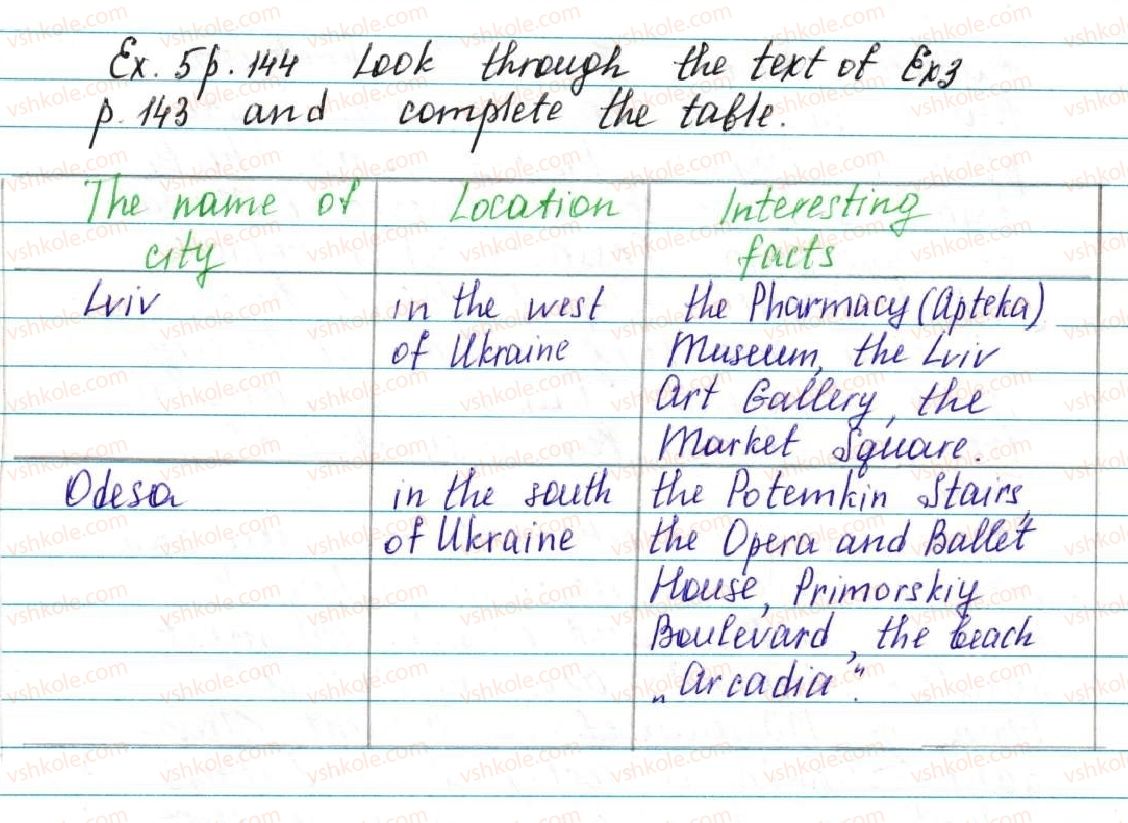 Ex. 5 p. 144 Look through the text of Ex3
p. 143 and complete the table.
The name of city
Location
Interesting facts
Lviv
in the west
of Ukraine
the Pharmacy (Apteka)
Museum, the Lviv
Art Gallery, the
Market Square.
Odesa
in the south
of Ukraine
the Potemkin Stairs,
the Opera and Ballet
House, Primorskiy
Boulevard, the beach
„Arcadia“.
vshkole.com